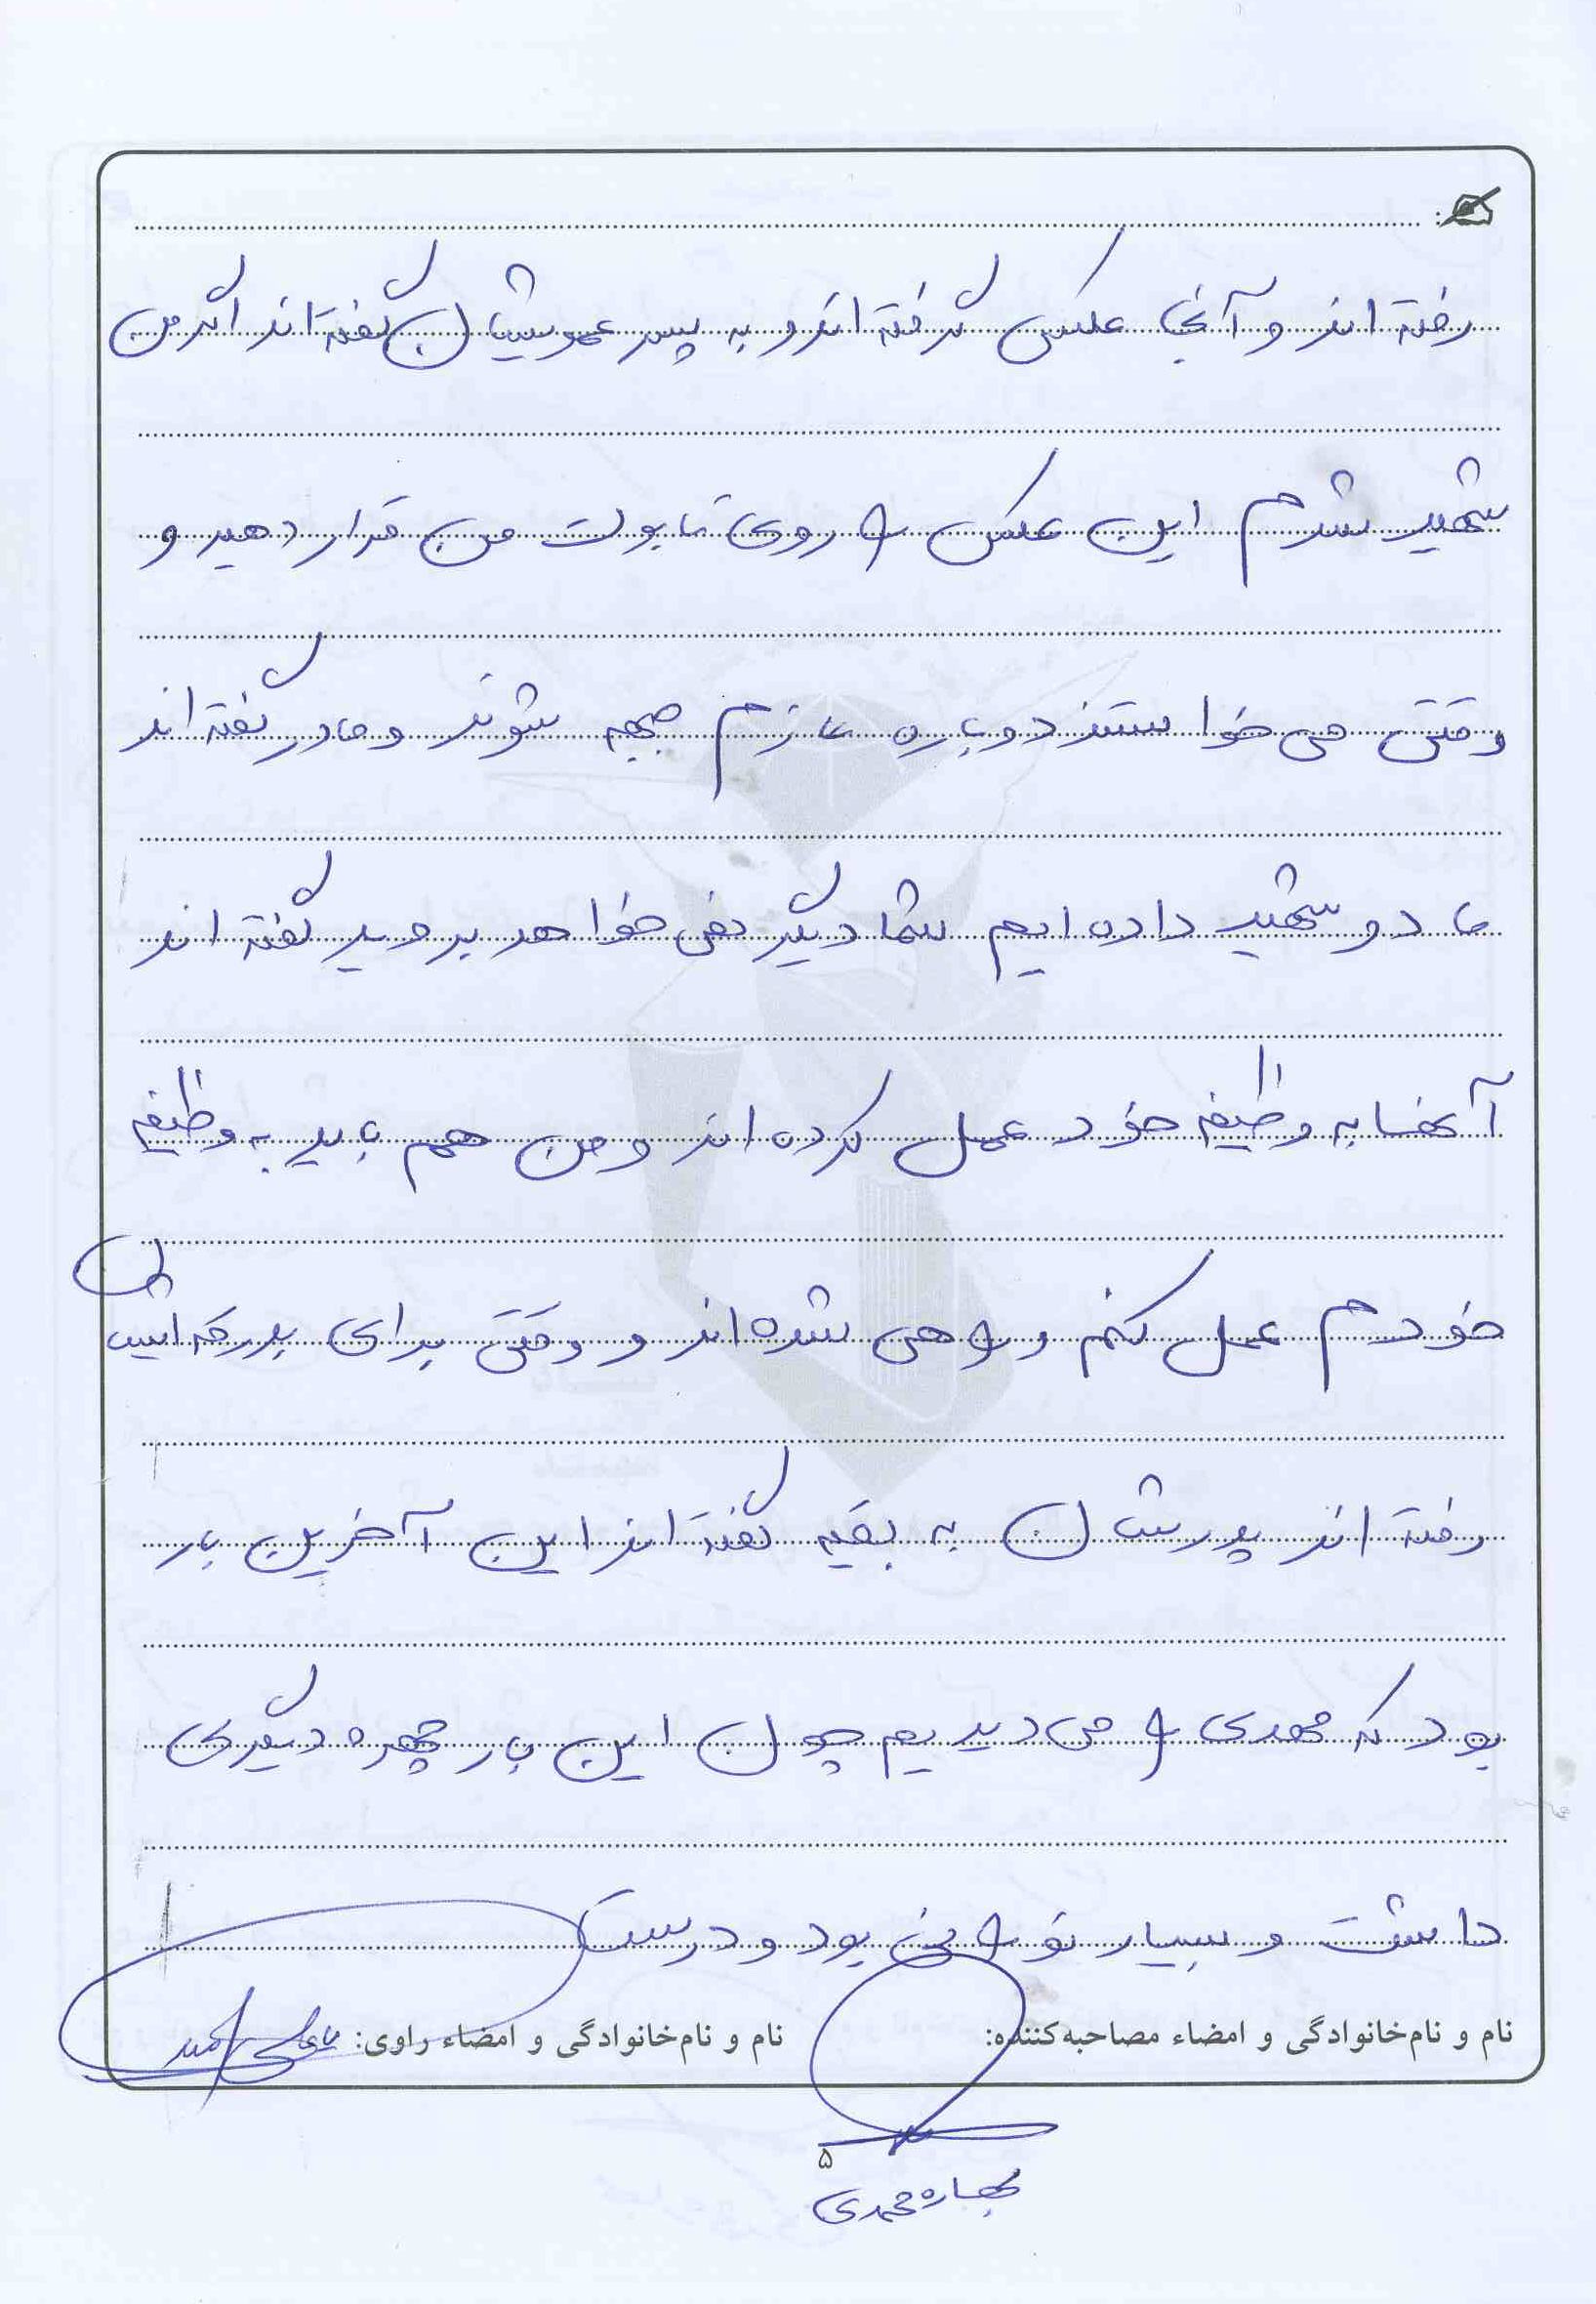 رفته اند و آنجا عکس گرفته اند و به پسر عمویشان گفته اند اگر من
شهید شدم این عکس را روی تابوت من قرار دهید و
وقتی می خواستند دوباره عازم جبهه شوند و مادر گفته اند
ما دو شهید داده ایم شما دیگر نمی خواهد بروید گفته اند
آنها به وظیفه خود عمل کرده اند و من هم باید به وظیفه
خودم عمل کنم و راهی شده اند و وقتی برای بدرقه ایشان
رفته اند پدرشان به بقیه گفته اند این آخرین بار
بود که مهدی را می دیدیم چون این بار چهره دیگری
داشت و بسیار نورانی بود و درست
نام و نام‌خانوادگی و امضاء مصاحبه‌کننده:
نام و نام‌خانوادگی و امضاء راوی:
۵
بهاره محمدی